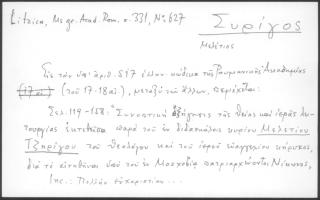 Litzica, Ms gr. Acad. Rom. σ. 331, No 627
Συρίγος
Μελέτιος
Εἰς τὸν ὑπ' ἀριθ. 517 ἑλλην. κώδικα τῆς Ρουμανικῆς Ἀκαδημίας
(17 αἰ.) (τοῦ 17-18 αἰ.), μεταξὺ τῶν ἄλλων, περιέχεται:
Σελ. 119-158: "Συνοπτικὴ ἐξήγησις τῆς θείας καὶ ἱερᾶς λει-
τουργίας παρὰ τοῦ ἐν διδασκάλοις κυρίου Μελετίου
Τζηρίγου τοῦ θεολόγου καὶ τοῦ ἱεροῦ εὐαγγελίου κήρυκος,
διὰ τὸ αἰτηθῆναι ὑπὸ τοῦ ἐν Μοσχοβίᾳ πατριαρχεύοντος Νίκωνος,
Inc.: Πολλὴν εὐχαριστίαν...